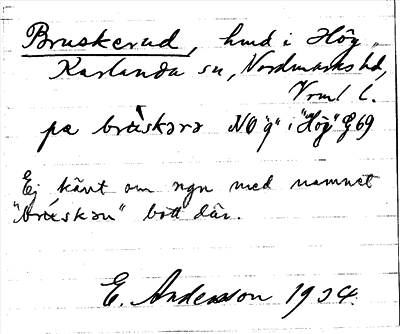 Bruskerud, hmd i Hög,
Karlanda sn, Nordmarks hd,
Vrml l.
pa bruskərə NO "g" i "Hög" G 69
Ej känt om ngn med namnet
"bruskən" bott där.
E. Andersson 1934.